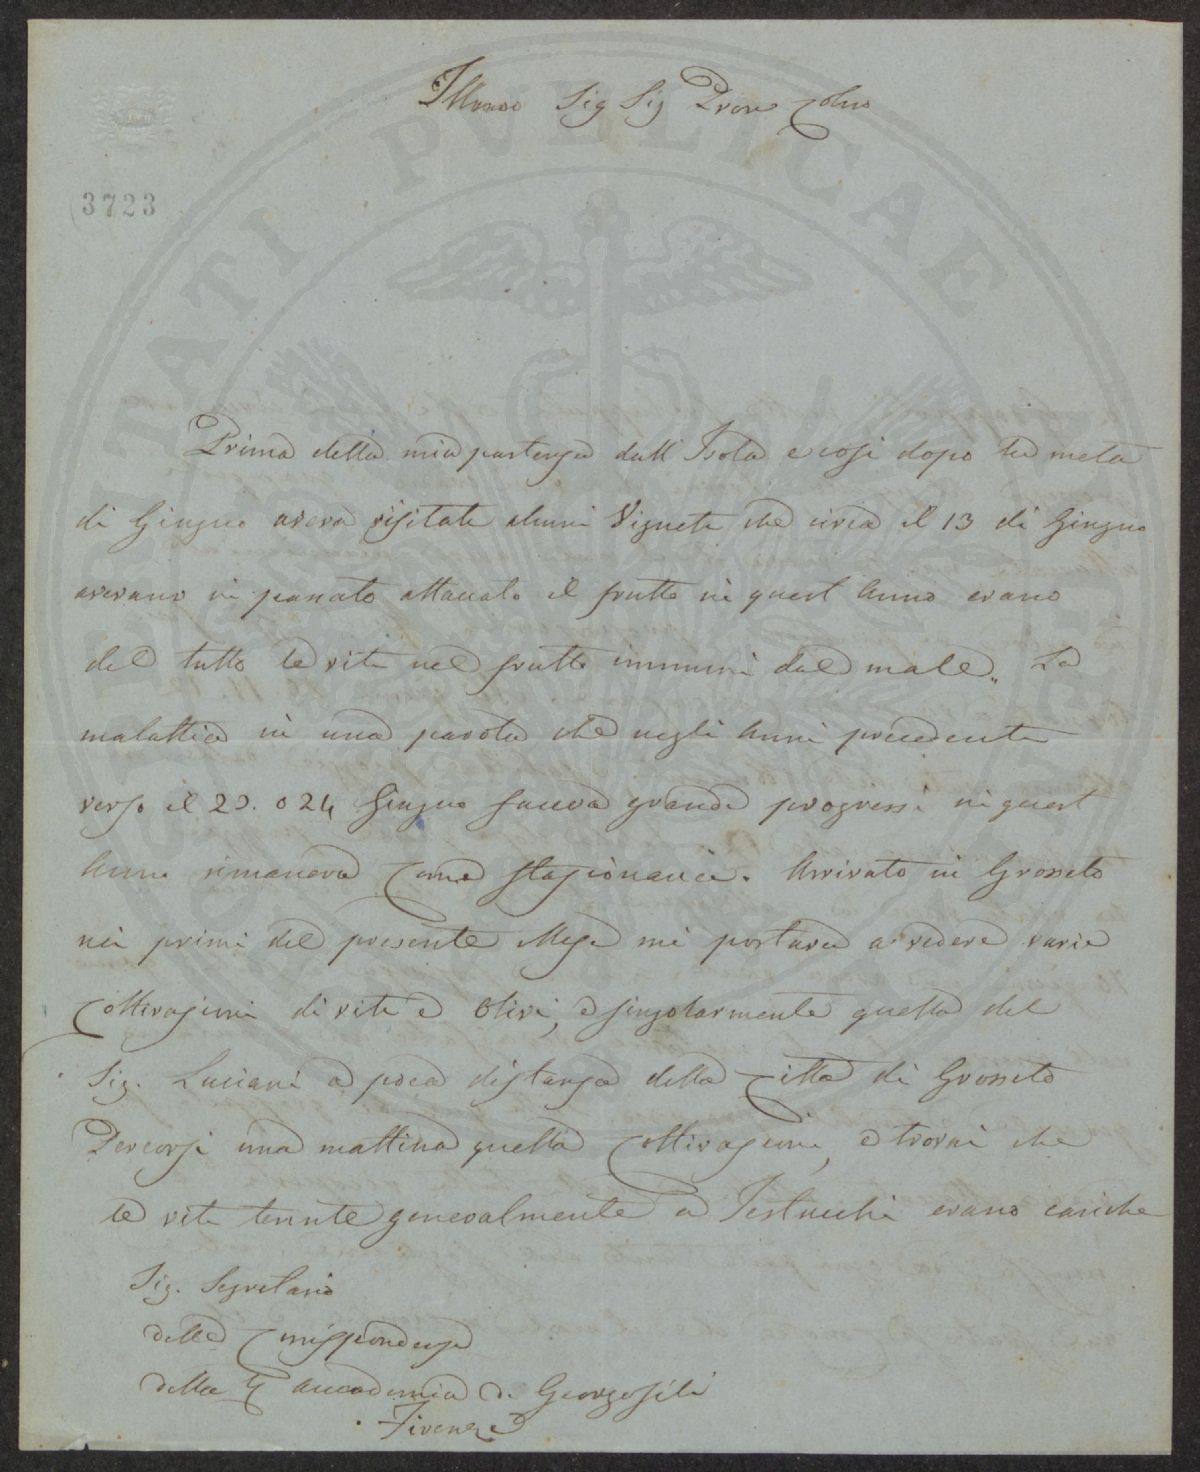 Illmo Sig Sig Prone Colmo
3723
Prima della mia partenza dall' Isola e così dopo la metà
di Giugno aveva visitate alcuni Vigneti che circa il 13 di Giugno
avevano in passato attaccato il frutto in quest Anno erano
del tutto le viti nel frutto immuni dal male. La
malattia in una parola che negli Anni precedenti
verso il 20. o 24 Giugno faceva grandi progressi in quest
Anno rimaneva come stazionaria. Arrivato in Grosseto
nei primi del presente Mese mi portava a vedere varie
Coltivazioni di viti e Olivi, e singolarmente quella del
Sig. Luciani a poca distanza della Città di Grosseto
Percorsi una mattina quella Coltivazione, e trovai che
le viti tenute generalmente a Testucchi erano cariche
Sig. Segretario
delle Corrispondenze
della Accademia de Georgofili
Firenze